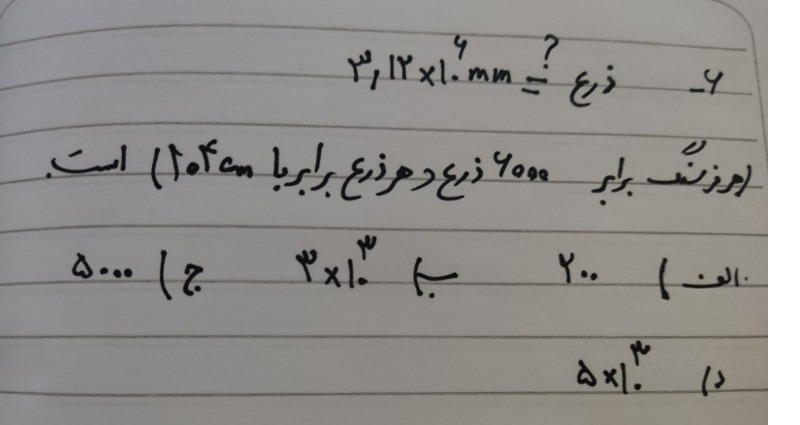 ۶_ ذرع ? = ۳٫۱۲×۱۰^۶ mm
(هر فرسنگ برابر ۶۰۰۰ ذرع و هر ذرع برابر با ۱۰۴ cm) است.
الف) ۲۰۰ ب) ۳×۱۰^۳ ج) ۵۰۰۰
د) ۵×۱۰^۳